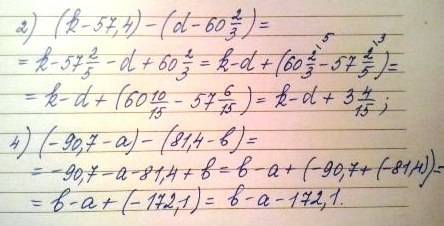 2) (k-57,4)-(d-60 2/3)=
=k-57 2/5-d+60 2/3=k-d+(60 2/3 \5-57 2/5 \3)=
=k-d+(60 10/15-57 6/15)=k-d+3 4/15;
4) (-90,7-a)-(81,4-b)=
=-90,7-a-81,4+b=b-a+(-90,7+(-81,4))=
=b-a+(-172,1)=b-a-172,1.